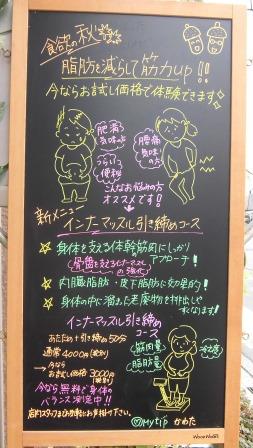 食欲の秋
脂肪を減らして筋力up!!
今ならお試し価格で体験できます
肥満
気味
つらい
便秘
腰痛
気味
の方
こんなお悩みの方
オススメです!
新メニュー
インナーマッスル引き締めコース
☆身体を支える体幹の筋肉にしっかり
アプローチ!
(骨盤を支えるインナーマッスル
の強化)
☆内臓脂肪・皮下脂肪に効果的!
☆身体の中に溜まった老廃物を排出しやすく
なります!
インナーマッスル引き締め
コース
あたため+引き締め50分
通常 4000円(税別)
→今なら
お試し価格3000円
(税別)
今なら無料で身体の
バランス測定中!!
店内スタッフまでお気軽にお声掛け下さい。
筋肉量
脂肪量
冷え性
Mytip かわた